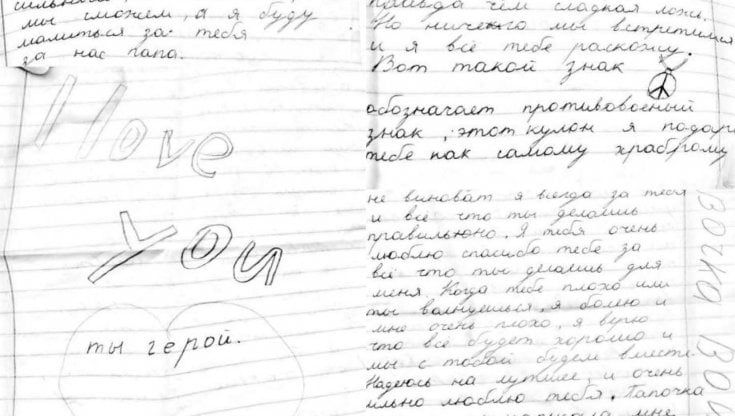 мы сможем, а я буду
молиться за тебя
за нас папа.
I love
You
ты герой.
правда чем сладкая ложь.
Но ничего мы встретимся
и я всё тебе раскожу.
Вот такой знак
обозначает противовоеный
знак, этот кулон я подарю
тебе как самому храброму
не виноват я всегда за тебя
и всё что ты делаишь
правильюно. Я тебя очень
люблю спасибо тебе за
всё что ты делаешь для
меня. Когда тебе плохо или
ты волнуешься, я болею и
мне очень плохо, я верю
что всё будет хорошо и
мы с тобой будем вместе.
Надеюсь на лутшее, и очень
сильно люблю тебя. Папочка
мне